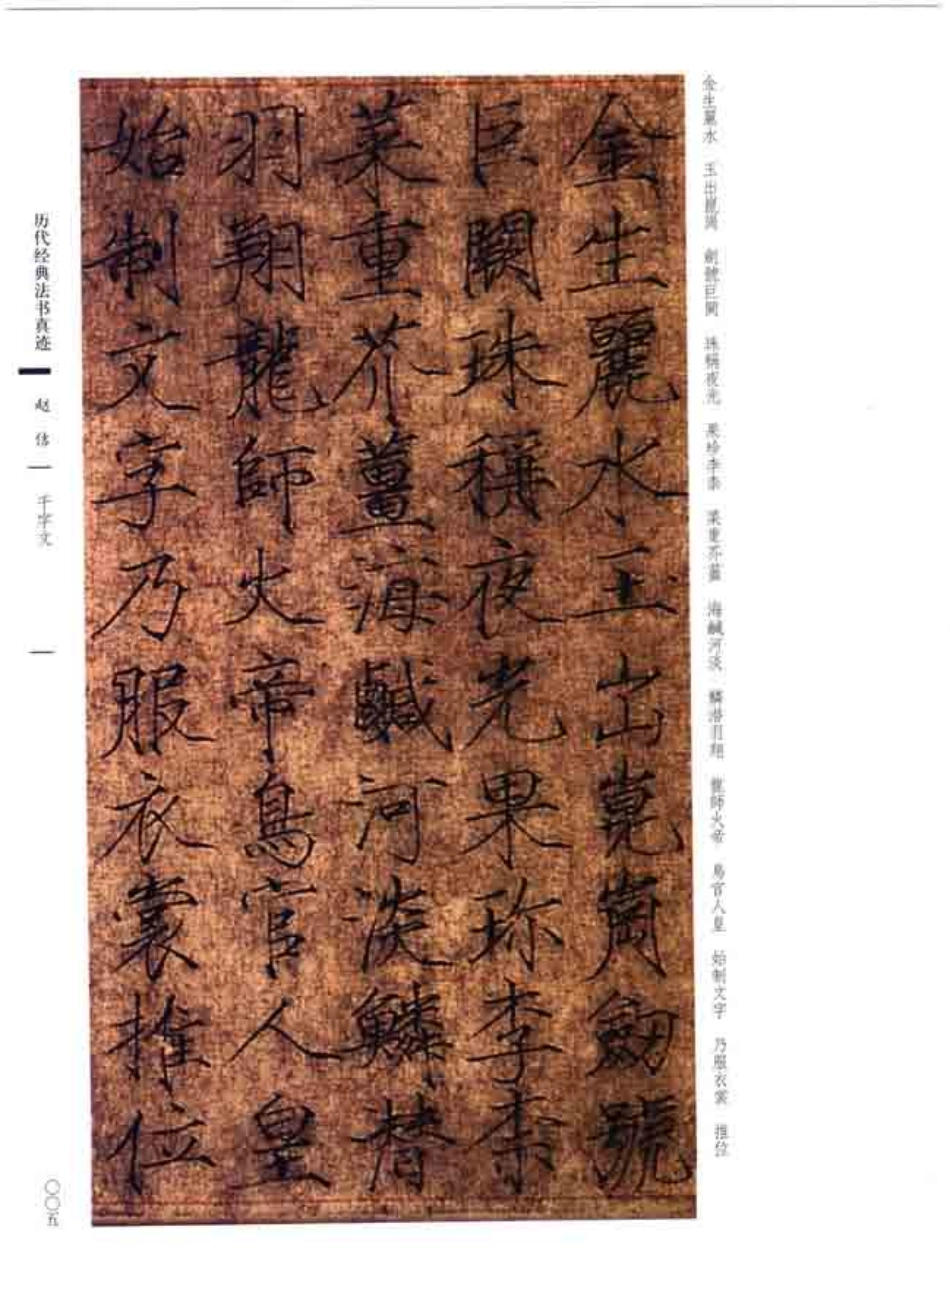 金生麗水　玉出崑岡　劍號巨闕　珠稱夜光　果珍李柰　菜重芥薑　海鹹河淡　鱗潜羽翔　龍師火帝　鳥官人皇　始制文字　乃服衣裳　推位
金生麗水玉出崑崗劒號
巨闕珠稱夜光果珎李柰
菜重芥薑海鹹河淡鱗替
羽翔龍師火帝鳥官人皇
始制文字乃服衣裳推位
历代经典法书真迹
赵佶
千字文
〇〇五